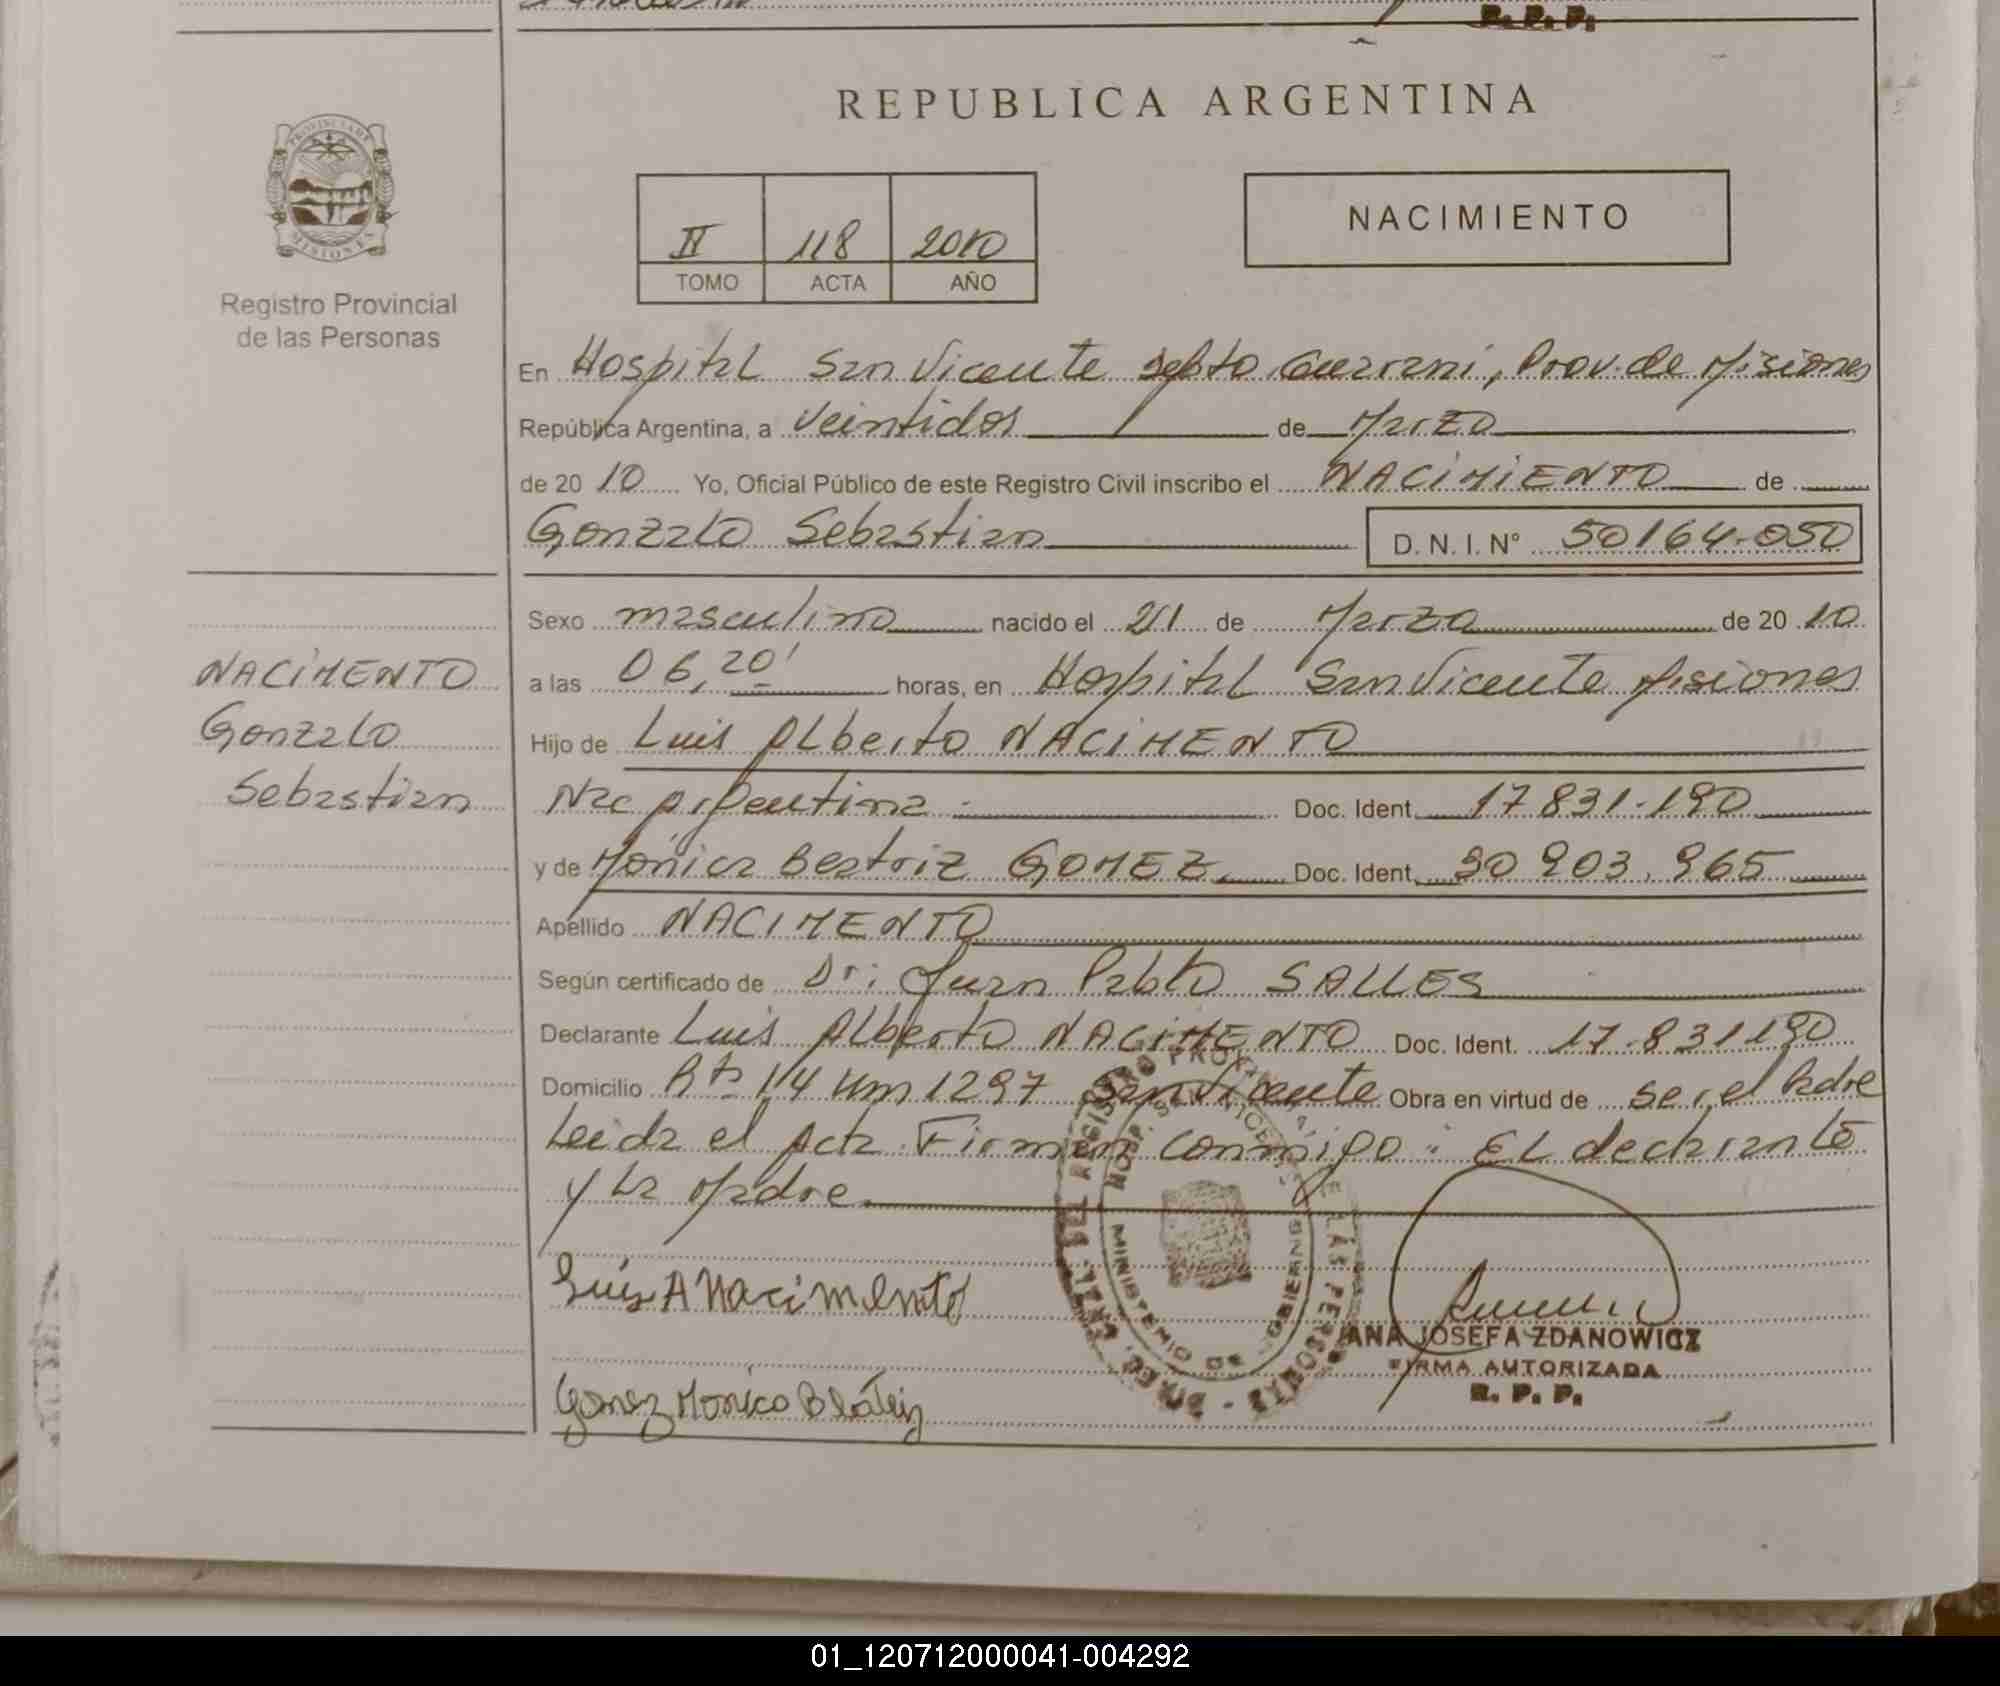 R. P. P.
REPUBLICA ARGENTINA
PROVINCIA DE
MISIONES
Registro Provincial
de las Personas
II 118 2010
TOMO ACTA AÑO
NACIMIENTO
En Hospital San Vicente Depto Guarani, Prov. de Misiones
República Argentina, a veintidos de Marzo
de 20 10 Yo, Oficial Público de este Registro Civil inscribo el NACIMIENTO de
Gonzalo Sebastian D. N. I. N° 50164.050
Sexo masculino nacido el 21 de Marzo de 20 10
a las 06,20' horas, en Hospital San Vicente Misiones
NACIMENTO
Gonzalo
Sebastian
Hijo de Luis Alberto NACIMENTO
Nac Argentina Doc. Ident. 17831.190
y de Mónica Beatriz GOMEZ Doc. Ident. 30 903.965
Apellido NACIMENTO
Según certificado de Dr: Juan Pablo SALLES
Declarante Luis Alberto NACIMENTO Doc. Ident. 17.831190
Domicilio Rta 14 Km 1297 San Vicente Obra en virtud de ser el Padre
Leida el Acta Firman conmigo: El declarante
y La Madre
Luis A Nacimento
Gomez Monica Beatriz
MINISTERIO DE GOBIERNO
HOSP. SAN VICENTE
ANA JOSEFA ZDANOWICZ
FIRMA AUTORIZADA
R. P. P.
01_120712000041-004292